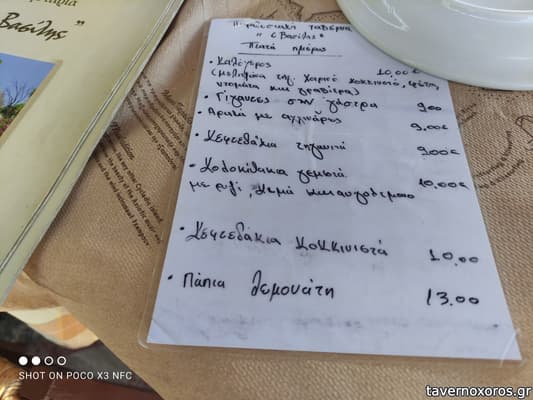 Βασίλης "
ταβέρνα
" ο Βασίλης "
Πιάτα ημέρας
• Καλόγερος 10,00€
(μελιτζάνα τηγ. χοιρινό κοκκινιστό, φέτα,
ντομάτα και γραβιέρα)
• Γίγαντες στη γάστρα 9,00
• Αρακά με αγκινάρες 9,00€
• Κεφτεδάκια τηγανιτά 9,00€
• Κολοκυθάκια γεμιστά 10,00€
με ρύζι, κιμά και αυγολέμονο
• Κεφτεδάκια κοκκινιστά 10,00
• Πάπια λεμονάτη 13,00
SHOT ON POCO X3 NFC
tavernoxoros.gr